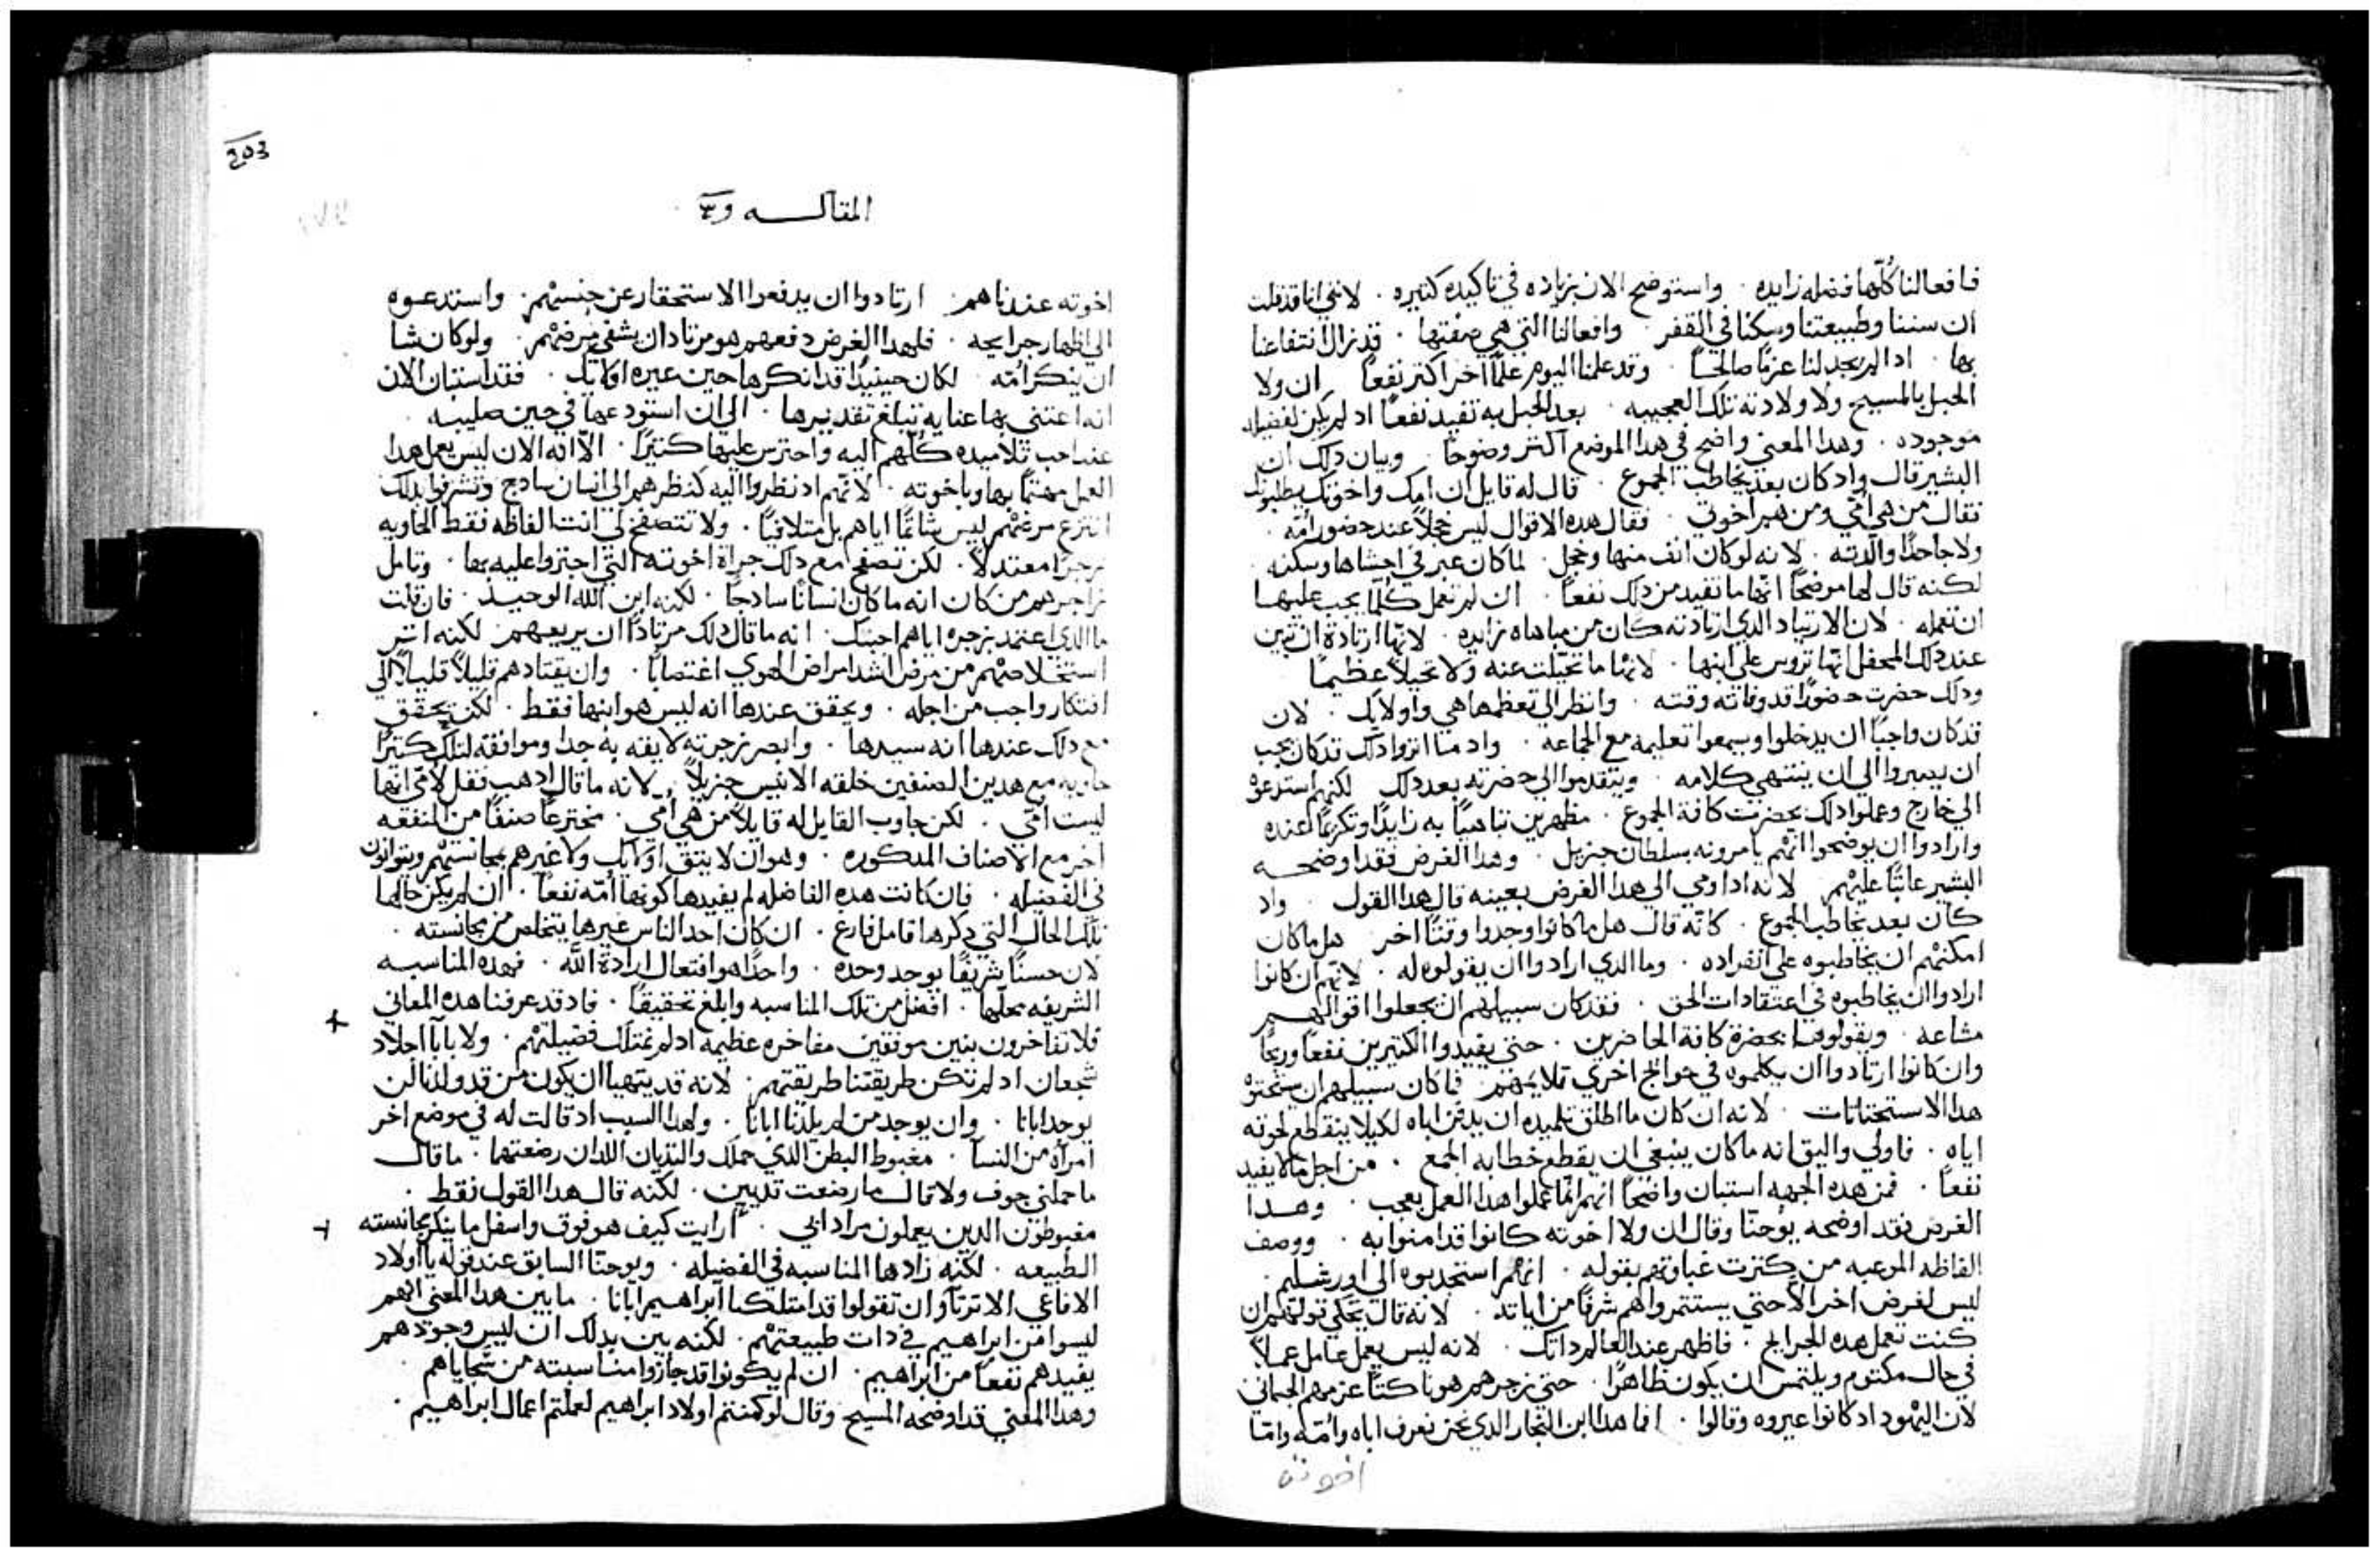 فافعالنا كُلّها فضله زايده . واستوضح الان بزياده في تاكيده كثيره . لانني انا قد قلت
ان سننا وطبيعتنا وسكنا في القفر . وافعالنا التي هي صفتها . قد زال انتفاعنا
بها . اذا لم يجد لنا عزمًا صالحًا . وقد علمنا اليوم علمًا اخر اكثر نفعًا ان ولا
الحبل بالمسيح ولا ولادته تلك العجيبه . بعد الحبل به تفيد نفعًا اد لم يكن لفضيله
موجوده . وهدا المعني واضح في هدا الموضع اكثر وضوحًا . وبيان دلك ان
البشير قال واد كان بعد يخاطب الجموع . قال له قايل ان امك واخوتك يطلبونك
فقال من هي امي ومن هم اخوتي . فقال هده الاقوال ليس خجلاً عند حضور امّه .
ولا جاحدًا والدته . لانه لو كان انف منها وخجل . لما كان عبر في احشاها وسكنه .
لكنه قال لها موضحًا انها ما تفيد من دلك نفعًا . ان لم تعمل كلّما يجب عليها
ان تعمله . لان الارتياد الدي ارتادته كان من مباهاه زايده . لانها ارتادة ان تبين
عند دلك المحفل انها تروس علي ابنها . لانها ما تخيلت عنه ولا تخيلاً عظيمًا
ودلك حضرت حضورًا قد وفاته وقته . وانظر الي تعظمها هي واولايك . لان
قد كان واجبًا ان يدخلوا ويسمعوا تعليمه مع الجماعه . واد ما اثروا دلك قد كان يجب
ان يصبروا الي ان ينتهي كلامه . ويتقدموا الي حضرته بعد دلك لكنهم استدعوه
الي خارج وعملوا دلك بحضرت كافة الجموع . مظهرين تباهيًا به زايدًا وتكرعًا عنده
وارادوا ان يوضحوا انهم يامرونه بسلطان جزيل . وهدا الغرض فقد اوضحه
البشير عاتبًا عليهم لانه اد اومي الي هدا الغرض بعينه قال هدا القول . واد
كان بعد يخاطب الجموع . كانّه قال هل ما كانوا وجدوا وقتًا اخر هل ما كان
امكنهم ان يخاطبوه علي انفراده . وما الدي ارادوا ان يقولوه له . لانهم ان كانوا
ارادوا ان يخاطبوه في اعتقادات الحق . فقد كان سبيلهم ان يجعلوا اقوالهم
مشاعه . ويقولوها بحضرة كافة الحاضرين . حتي يفيدوا الكتيرين نفعًا وربحًا
وان كانوا ارتادوا ان يكلموه في حوايج اخري تلايمهم فما كان سبيلهم ان يستحتوه
هدا الاستحتاتات . لانه ان كان ما اطلق تلميده ان يدفن اباه لكيلا ينقطع لحوقه
اياه . فاولي واليق انه ما كان ينبغي ان يقطع خطابه الجمع . من اجل ما لا يفيد
نفعًا . فمن هده الجهه استبان واضحًا انهم انما عملوا هدا العمل بعجب . وهدا
الغرض فقد اوضحه يوحنّا وقال ان ولا اخوته كانوا قد امنوا به . ووصف
الفاظه المرعبه من كترت غباوتهم بقوله . انهم استجدبوه الي اورشليم .
ليس لغرض اخر الا حتي يستتمروا هم شرفًا من اياته . لانه قال يحكي قولهم ان
كنت تعمل هده الجرايح . فاظهر عند العالم داتك . لانه ليس يعمل عامل عملاً
في حال مكتوم ويلتمس ان يكون ظاهرًا . حتي زجرهم هو ناكتًا عزمهم الجسماني
لان اليهود اد كانوا عيروه وقالوا . اما هدا ابن النجار الدي نحن نعرف اباه وامّه وامّا
اخوته
203
المقاله
اخوته عندنا هم . ارتادوا ان يدفعوا الاستحقار عن جنسهم . واستدعوه
الي اظهار جرايحه . فلهدا الغرض دفعهم هو مرتادا ان يشفي مرضهم . ولو كان شا
ان ينكر امّه . لكان حينيدٍ قد انكرها حين عيره اولايك . فقد استبان الان
انه اعتني بها عنايه تبلغ تقديرها . الي ان استودعها في حين صليبه .
عند احب تلاميده كلّهم اليه واحترس عليها كتيرًا . الاّ انه الان ليس يعمل هدا
العمل مهتمًا بها وباخوته . لانهم اد نظروا اليه كنظرهم الي انسان سادج وتشرفوا بدلك
انتزع مرغتهم ليس شاتمًا اياهم بل متلافيًا . ولا تتصفح لي انت الفاظه فقط الحاويه
زجرًا معتدلاً . لكن تصفح مع دلك جراة اخوته التي اجتروا عليه بها . وتامل
زاجرهم من كان انه ما كان انسانًا سادجًا . لكنه ابن الله الوحيد . فان قلت
ما الدي اعتمد بزجره اياهم اجبتك . انه ما قال دلك مرتادًا ان يريعهم لكنه اثر
استخلاصهم من مرض اشد امراض الهوي اغتصابًا . وان يقتادهم قليلاً قليلاً الي
افتكار واجب من اجله . ويحقق عندها انه ليس هو ابنها فقط . لكن يحقق
مع دلك عندها انه سيدها . وابصر زجرته لايقه به جدا وموافقه لتلك كتيرًا
حاويه مع هدين الصنفين خلقه الانيس جزيلاً . لانه ما قال ادهب فقل لامي انها
ليست امّي . لكن جاوب القايل له قايلاً من هي امي . مخترعًا صنفًا من المنفعه
اخر مع الاصناف المدكوره . وهو ان لا يتق اولايك ولا غيرهم بمجانستهم ويتوانون
في الفضيله . فان كانت هده الفاضله لم يفيدها كونها امّه نفعًا . ان لم يكن حالها
تلك الحال التي دكرها قامل فارغ . ان كان احد الناس غيرها يتخلص من مجانسته .
لان حسنًا شريفًا يوجد وحده . واحدًا هو افتعال ارادة اللّه . فهده المناسبه
الشريفه محلّها . افضل من تلك المناسبه وابلغ تحقيقًا . فاد قد عرفنا هده المعاني
فلا نفاخرون ببنين موثقين مفاخره عظيمه اد لم نمتلك فضيلتهم . ولا بابآ اجلاد
شجعان اد لم تكن طريقتنا طريقتهم . لانه قد يتهيا ان يكون من قد ولدنا لن
يوجد ابانا . وان يوجد من لم يلدنا ابانا . ولهدا السبب اد قالت له في موضع اخر
امراه من النسآ . مغبوط البطن الدي حملك والتديان اللدان رضعتهما . ما قال
ما حملني جوف ولا قال ما رضعت تديين . لكنه قال هدا القول فقط .
مغبوطون الدين يعملون مراد ابي . ارايت كيف هو فوق واسفل ما ينكر مجانسته
الطبيعه . لكنه زادها المناسبه في الفضيله . ويوحنّا السابق عند قوله يا اولاد
الافاعي الا ترتآوا ان تقولوا قد امتلكنا ابراهيم ابانا . ما يبين هدا المعني انهم
ليسوا من ابراهيم في دات طبيعتهم . لكنه يبن بدلك ان ليس وجودهم
يفيدهم نفعًا من ابراهيم . ان لم يكونوا قد جازوا مناسبته من سجاياهم .
وهدا المعني قد اوضحه المسيح وقال لو كنتم اولاد ابراهيم لعملتم اعمال ابراهيم .